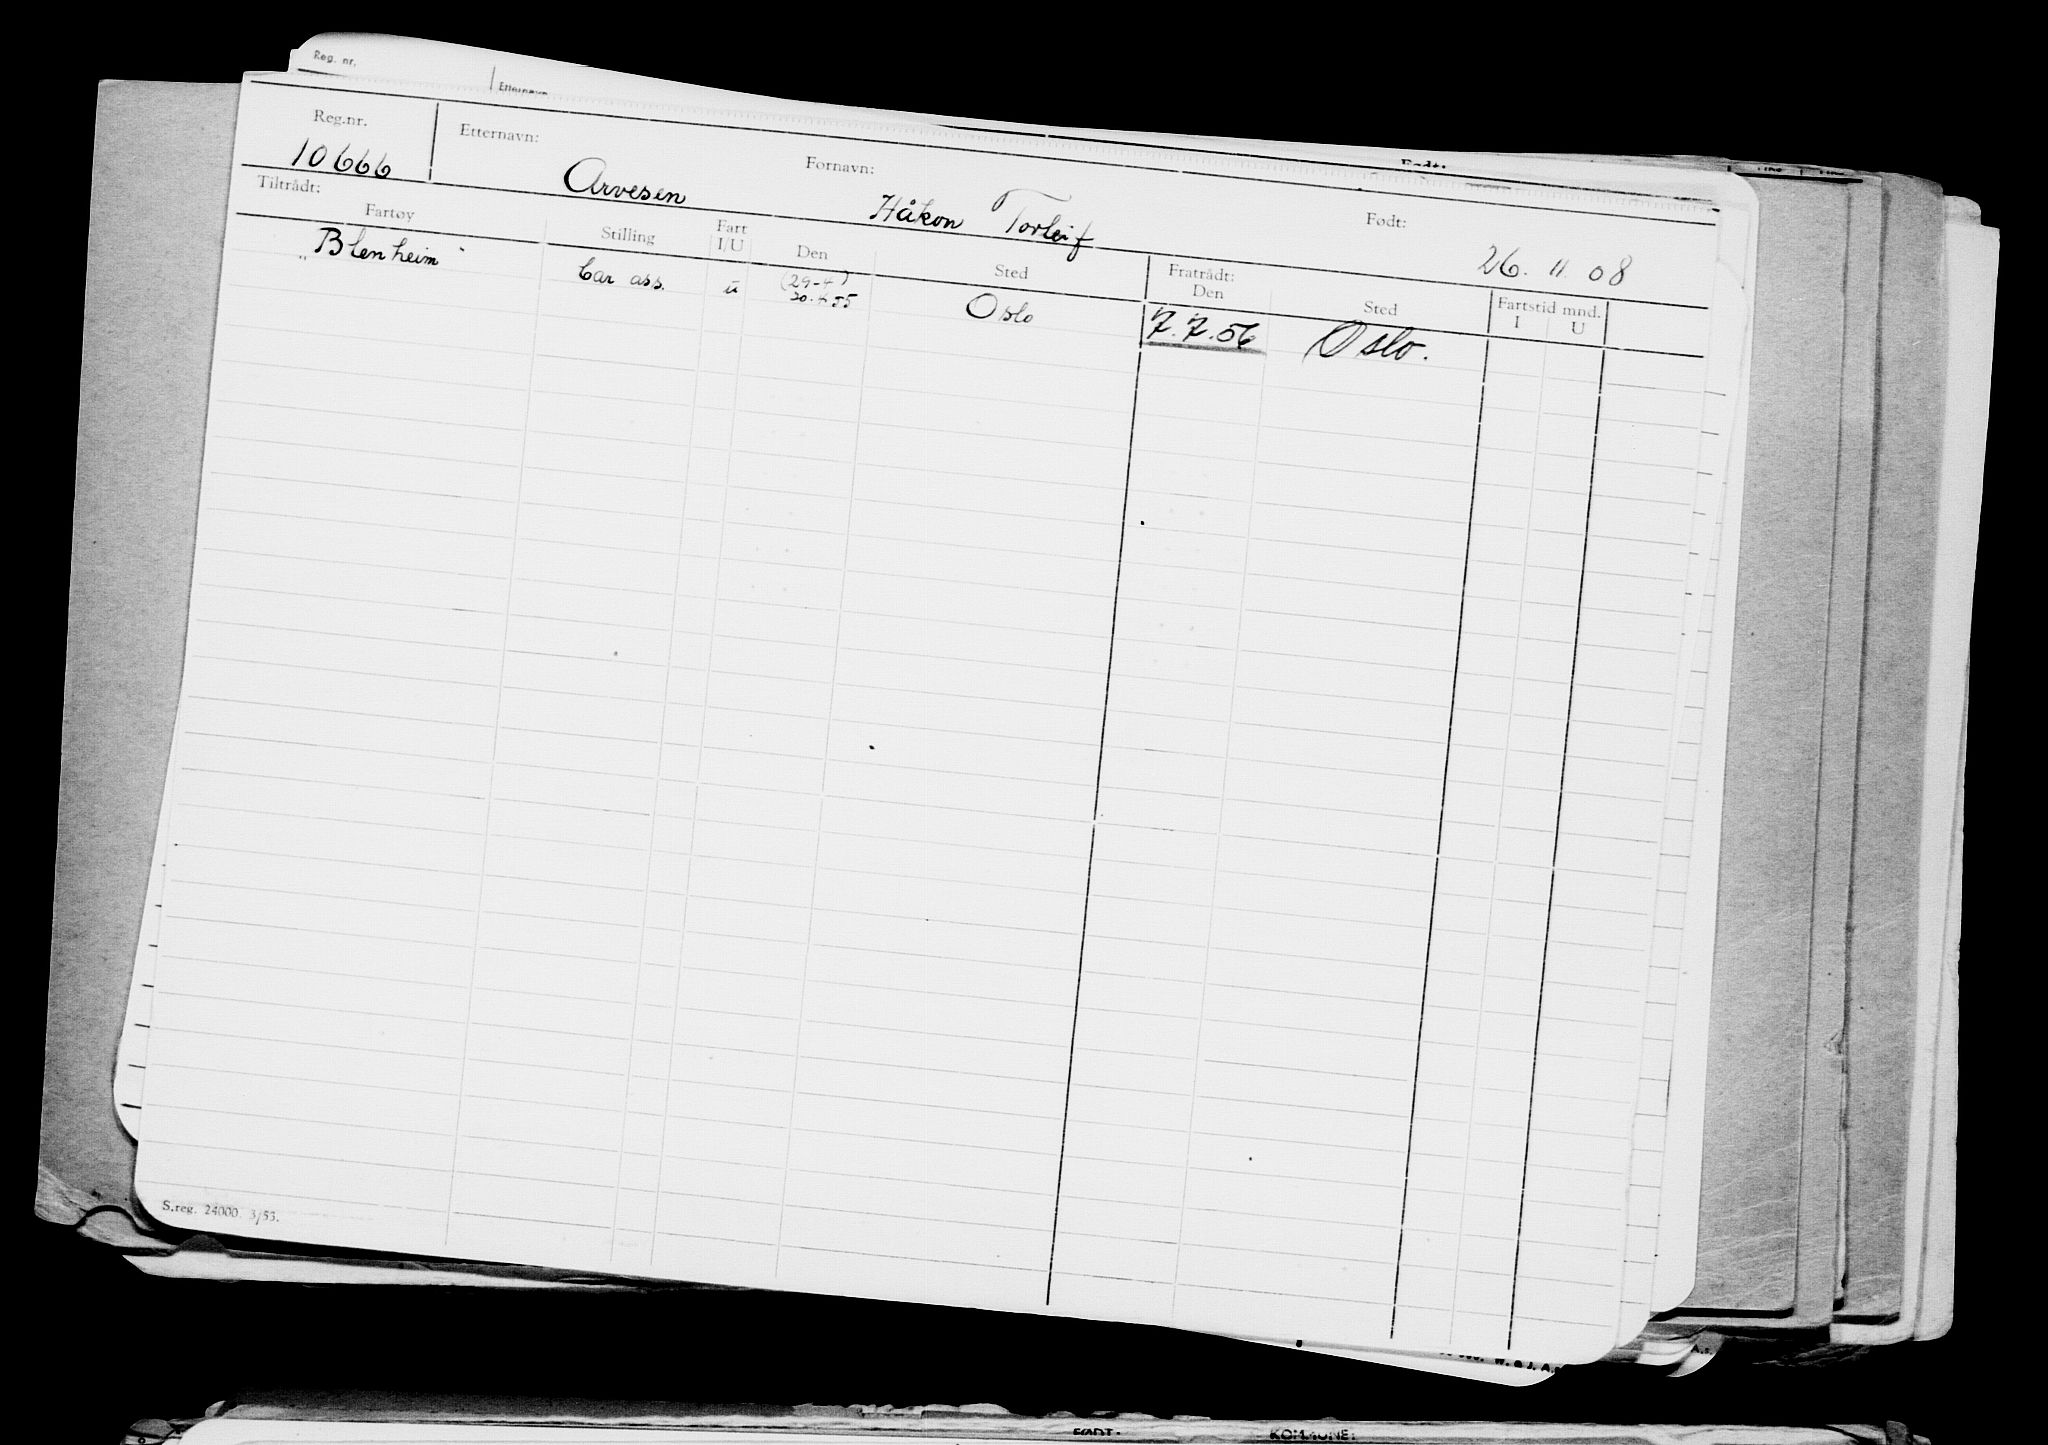 Reg. nr.
Etternavn
Født:
Reg.nr. Etternavn: Fornavn: Født:
10666 Arvesen Håkon Torleif 26. 11. 08
Tiltrådt: Fratrådt:
Fartøy Stilling Fart I/U Den Sted Den Sted Fartstid mnd. I U
"Blenheim" Car ass. u (29-4) Oslo 7.7.56 Oslo.
30.4.55
S.reg. 24000. 3/53.
FØDT: KOMMUNE: